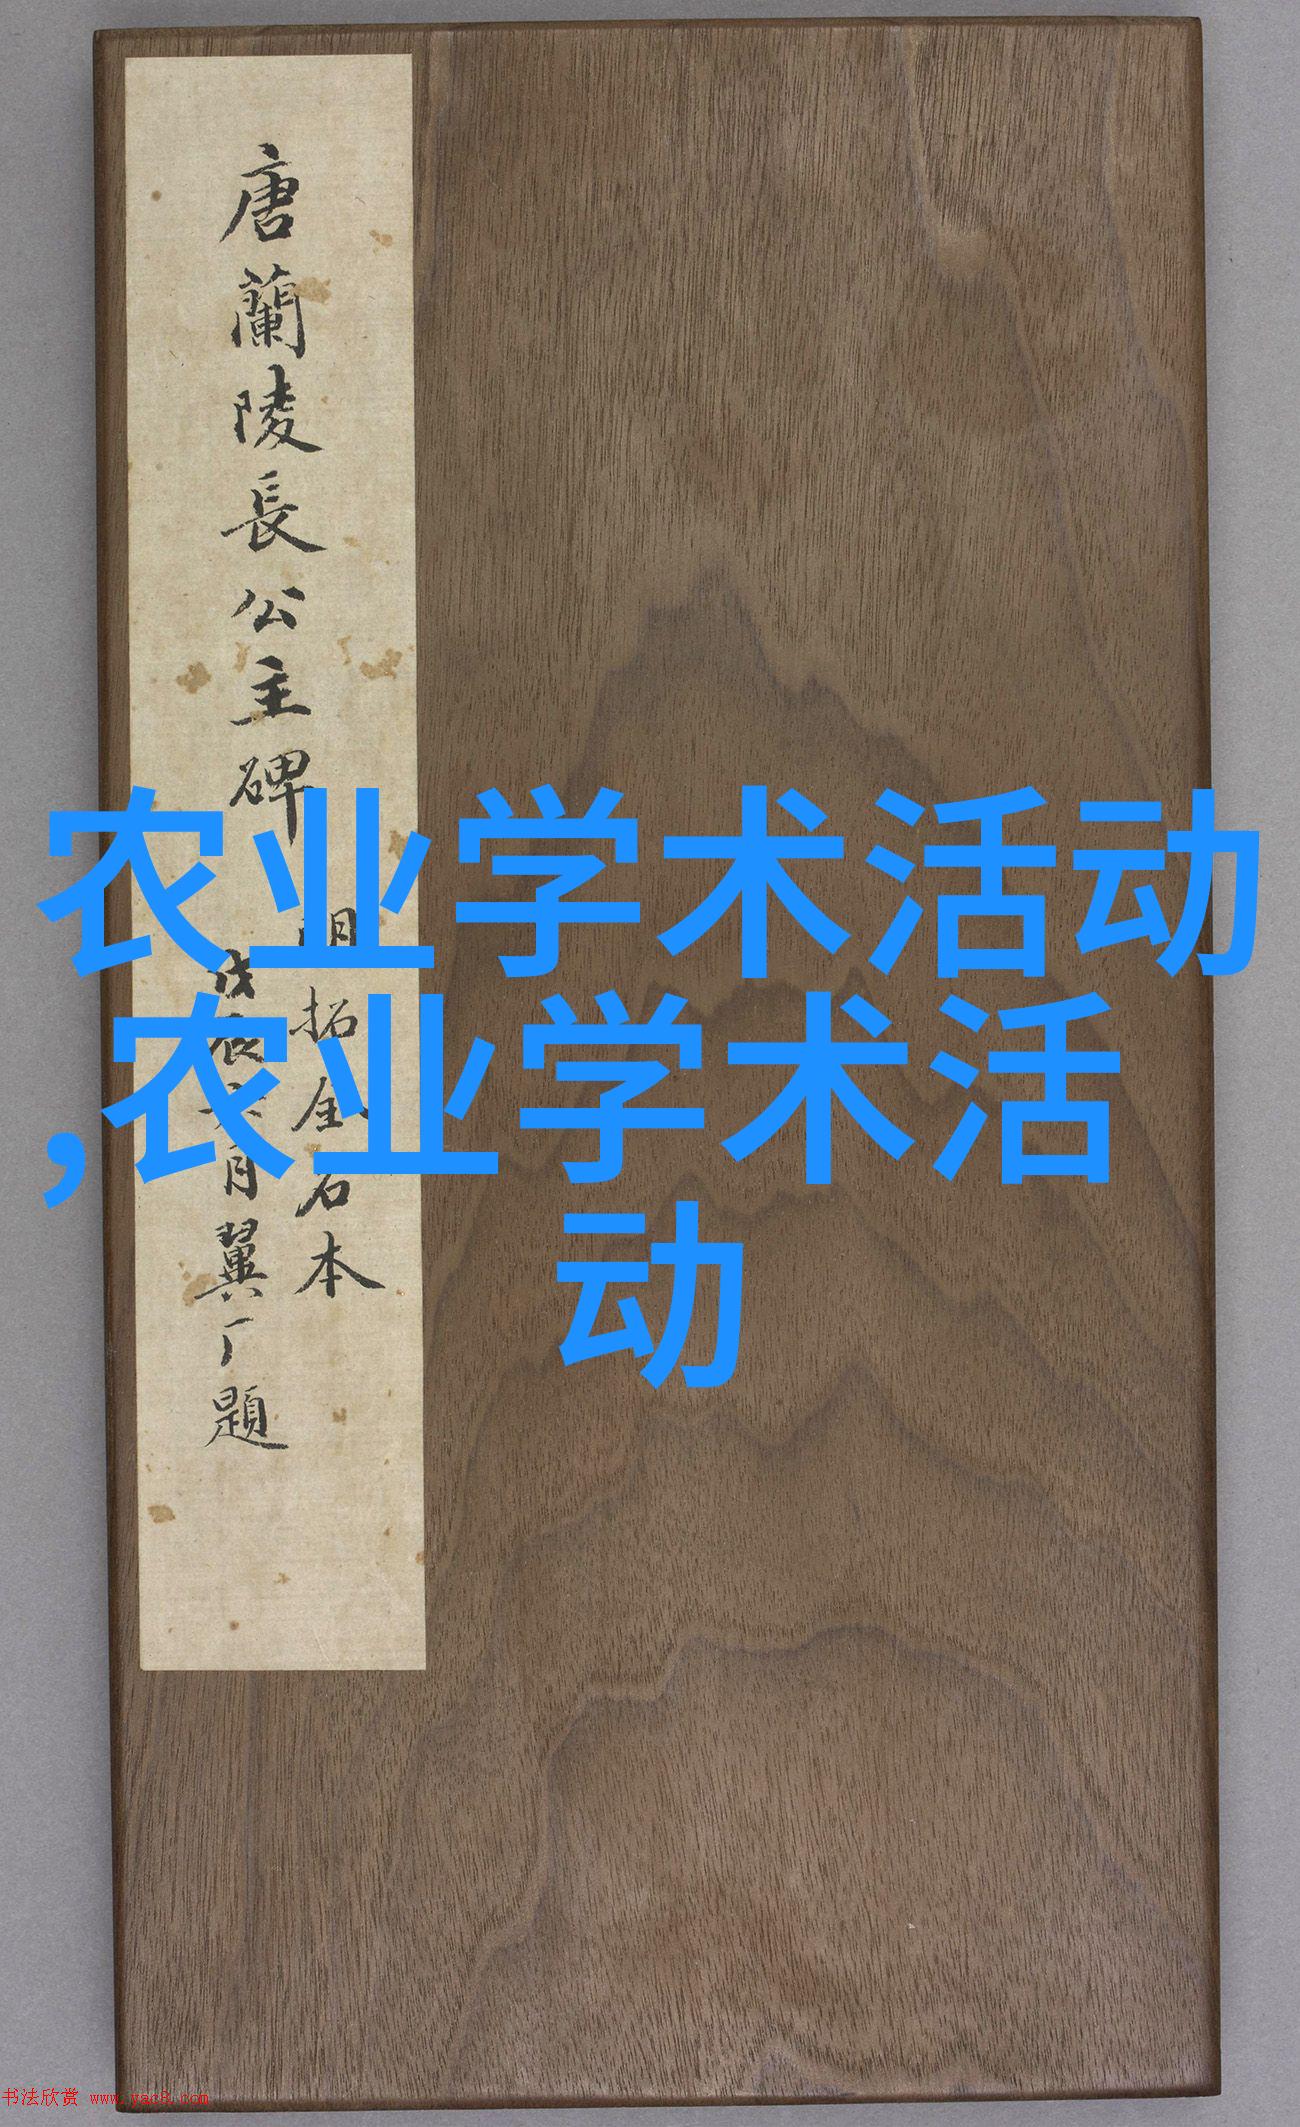 唐蘭陵長公主碑
明拓金石本
戊辰六月翼厂題
农业学术活动
,农业学术活
动
书法欣赏 www.yac8.com